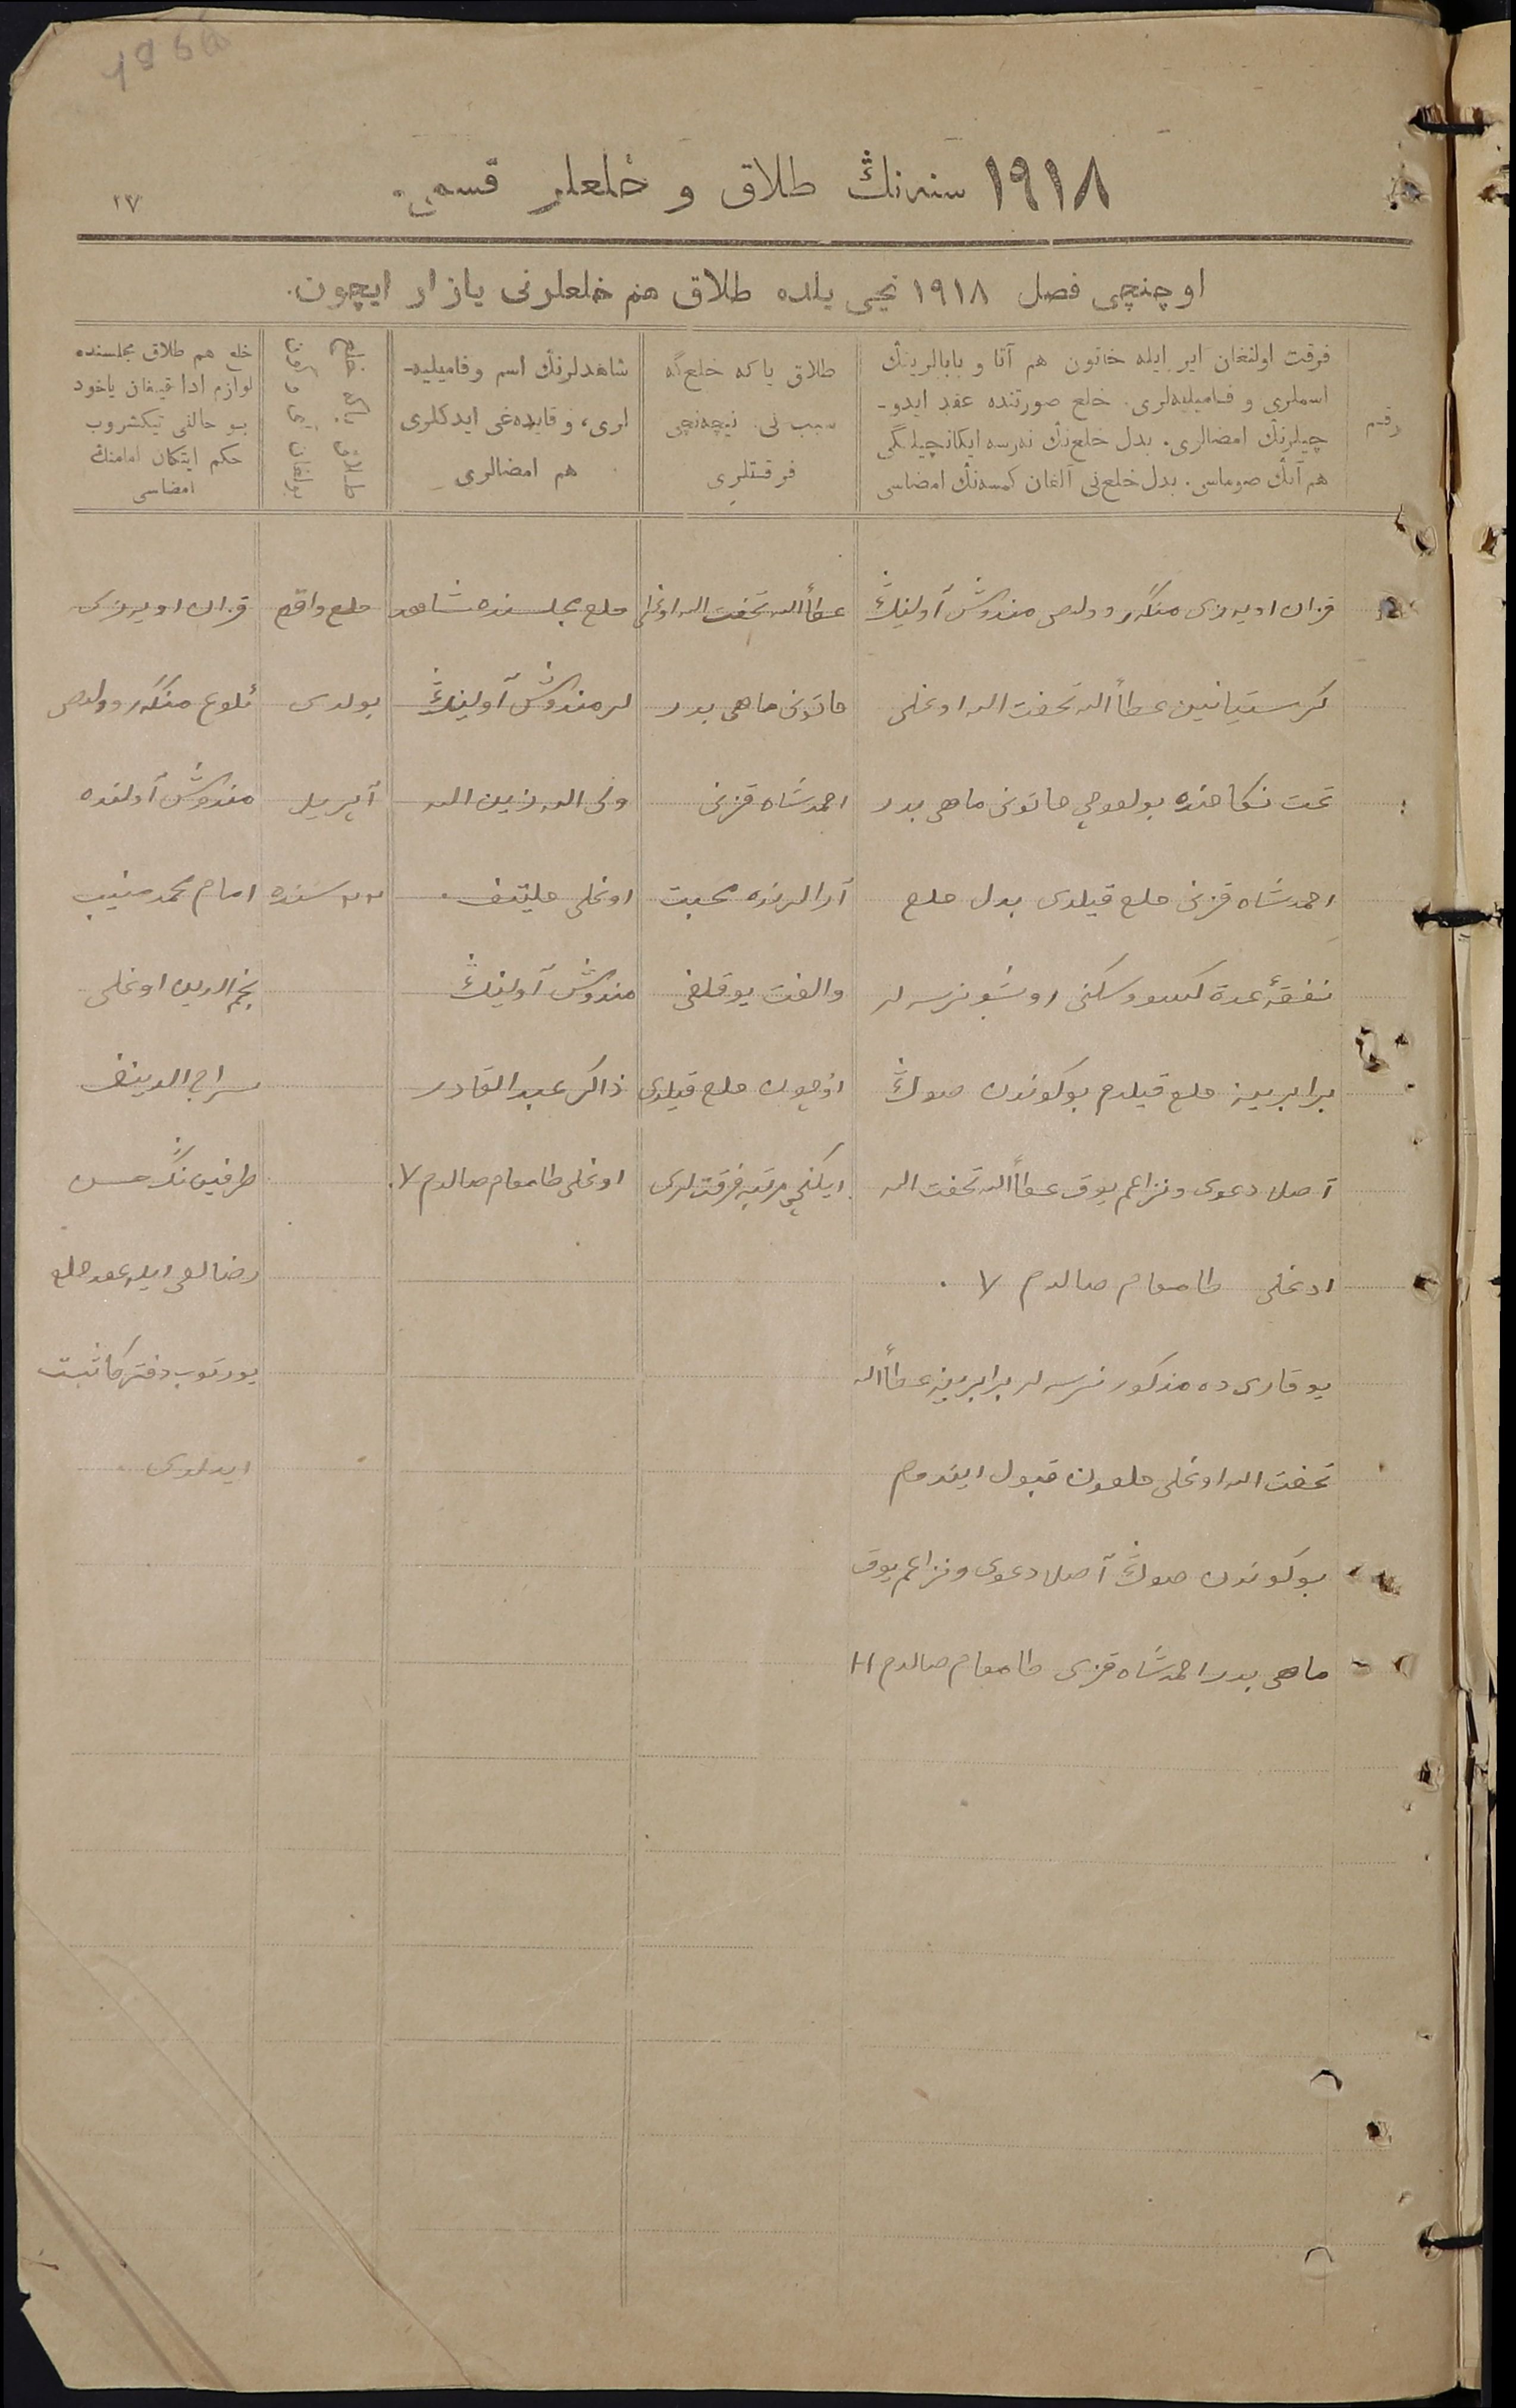 ۱۹۱۸ سنه‌نڭ طلاق و خلعلر قسمی.
۲۷
اوچنچی فصل ۱۹۱۸ نچی یلده طلاق هم خلعلرنی یازار ایچون.
رقم
فرقت اولنغان ایر ایله خاتون هم آتا و بابالرینڭ
اسملری و فامیلیه‌لری. خلع صورتنده عقد ایدو-
چیلرنڭ امضالری. بدل خلع‌نڭ نه‌رسه ایکانچیلگی
هم آنڭ صوماسی. بدل خلع‌نی آلغان کمسه‌نڭ امضاسی
طلاق یا که خلع‌گه
سبب نی. نیچه‌نچی
فرقتلری
شاهدلرنڭ اسم و فامیلیه-
لری، و قایده‌غی ایدکلری
هم امضالری
طلاق یا که خلع
بولغان آی و کون
خلع هم طلاق مجلسنده
لوازم ادا قیغان یاخود
بو حالنی تیکشروب
حکم ایتکان امامنڭ
امضاسی
قزان اویه‌زی منگر وولصی مندوش آولینڭ
کرستیانین عطأالله تحفت الله اوغلی
تحت نکاحنده بولعوچی خاتونی ماهی بدر
احمدشاه قزنی خلع قیلدی بدل خلع
نفقۀ عدة کسو و سکنی اوشبو نرسه لر
برابرینه خلع قیلدم بوکوندن صوڭ
آصلا دعوی و نزاعم یوق عطأالله تحفت الله
اوغلی طامغام صالدم ٧ .
یوقاری ده مذکور نرسه لر برابرینه عطأالله
تحفت الله اوغلی خلعون قبول ایتدم
بوکوندن صوڭ آصلا دعوی و نزاعم یوق
ماهی بدر احمدشاه قزی طامغام صالدم H
عطأالله تحفت الله اوغلی
خاتونی ماهی بدر
احمدشاه قزنی
آرالرنده محبت
و الفت یوقلغی
اوچون خلع قیلدی
ایکنچی مرتبه فرقتلری
خلع مجلسنده شاهد
لر مندوش آولینڭ
ولی الله زین الله
اوغلی
مندوش آولینڭ
ذاکر عبدالقادر
اوغلی طامغام صالدم ٧.
خلع واقع
بولدی
آپریل
۲۲ سنده
قزان اویه‌زی
ئلوغ منگر وولصی
مندوش آولنده
امام محمد منیب
نجم الدین اوغلی
سراج الدینف
طرفین نڭ حسن
رضالغی ایله عقد خلع
یورتوب دفترکا ثبت
ایدلدی .